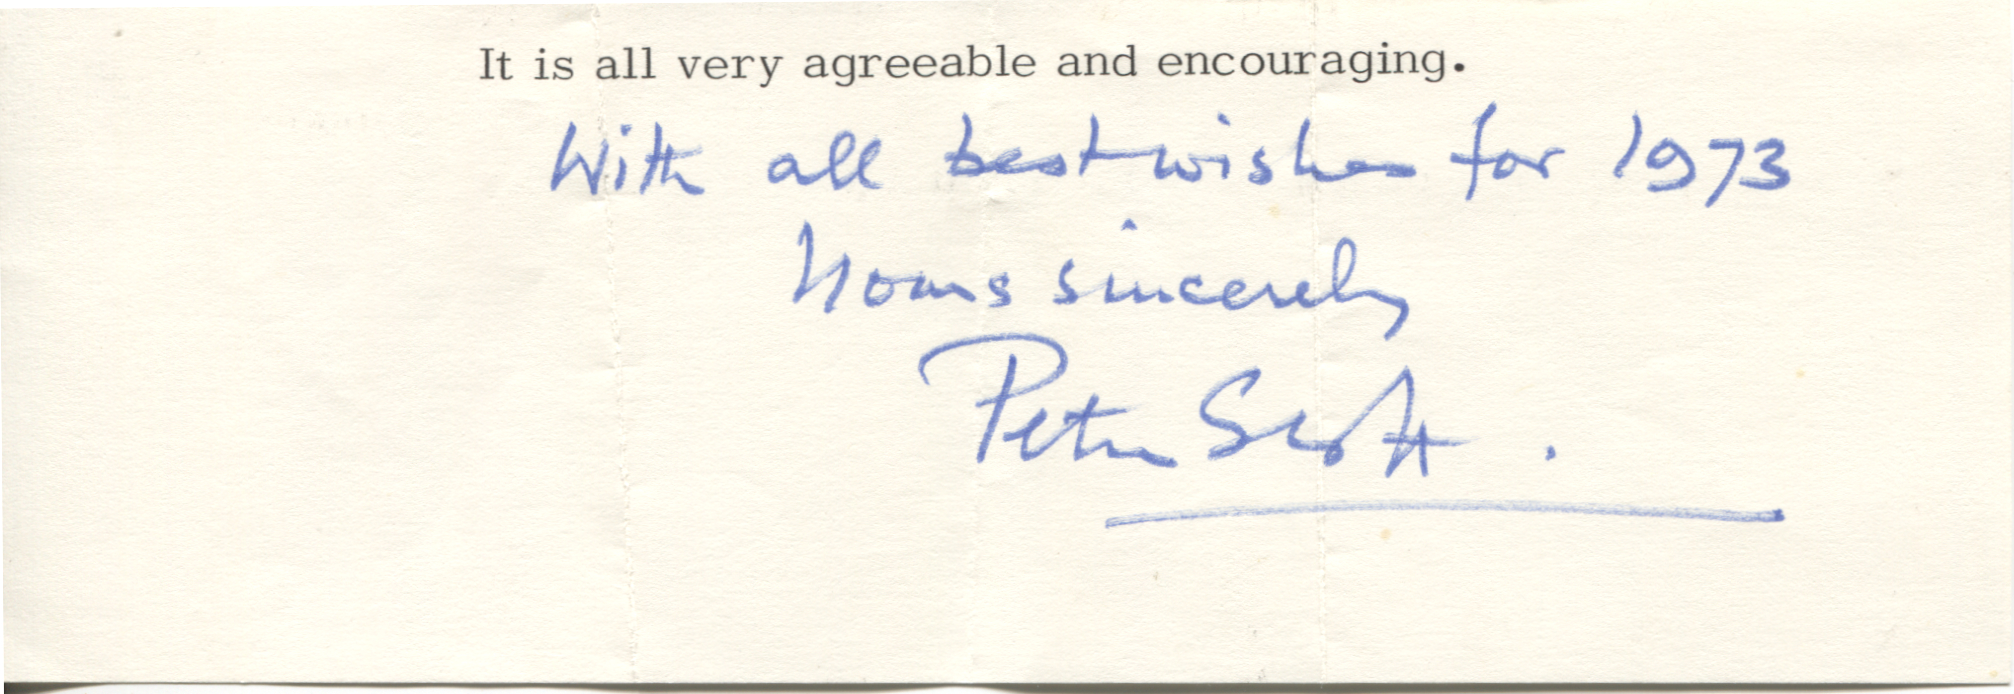 It is all very agreeable and encouraging.
With all best wishes for 1973
Yours sincerely
Peter Scott.